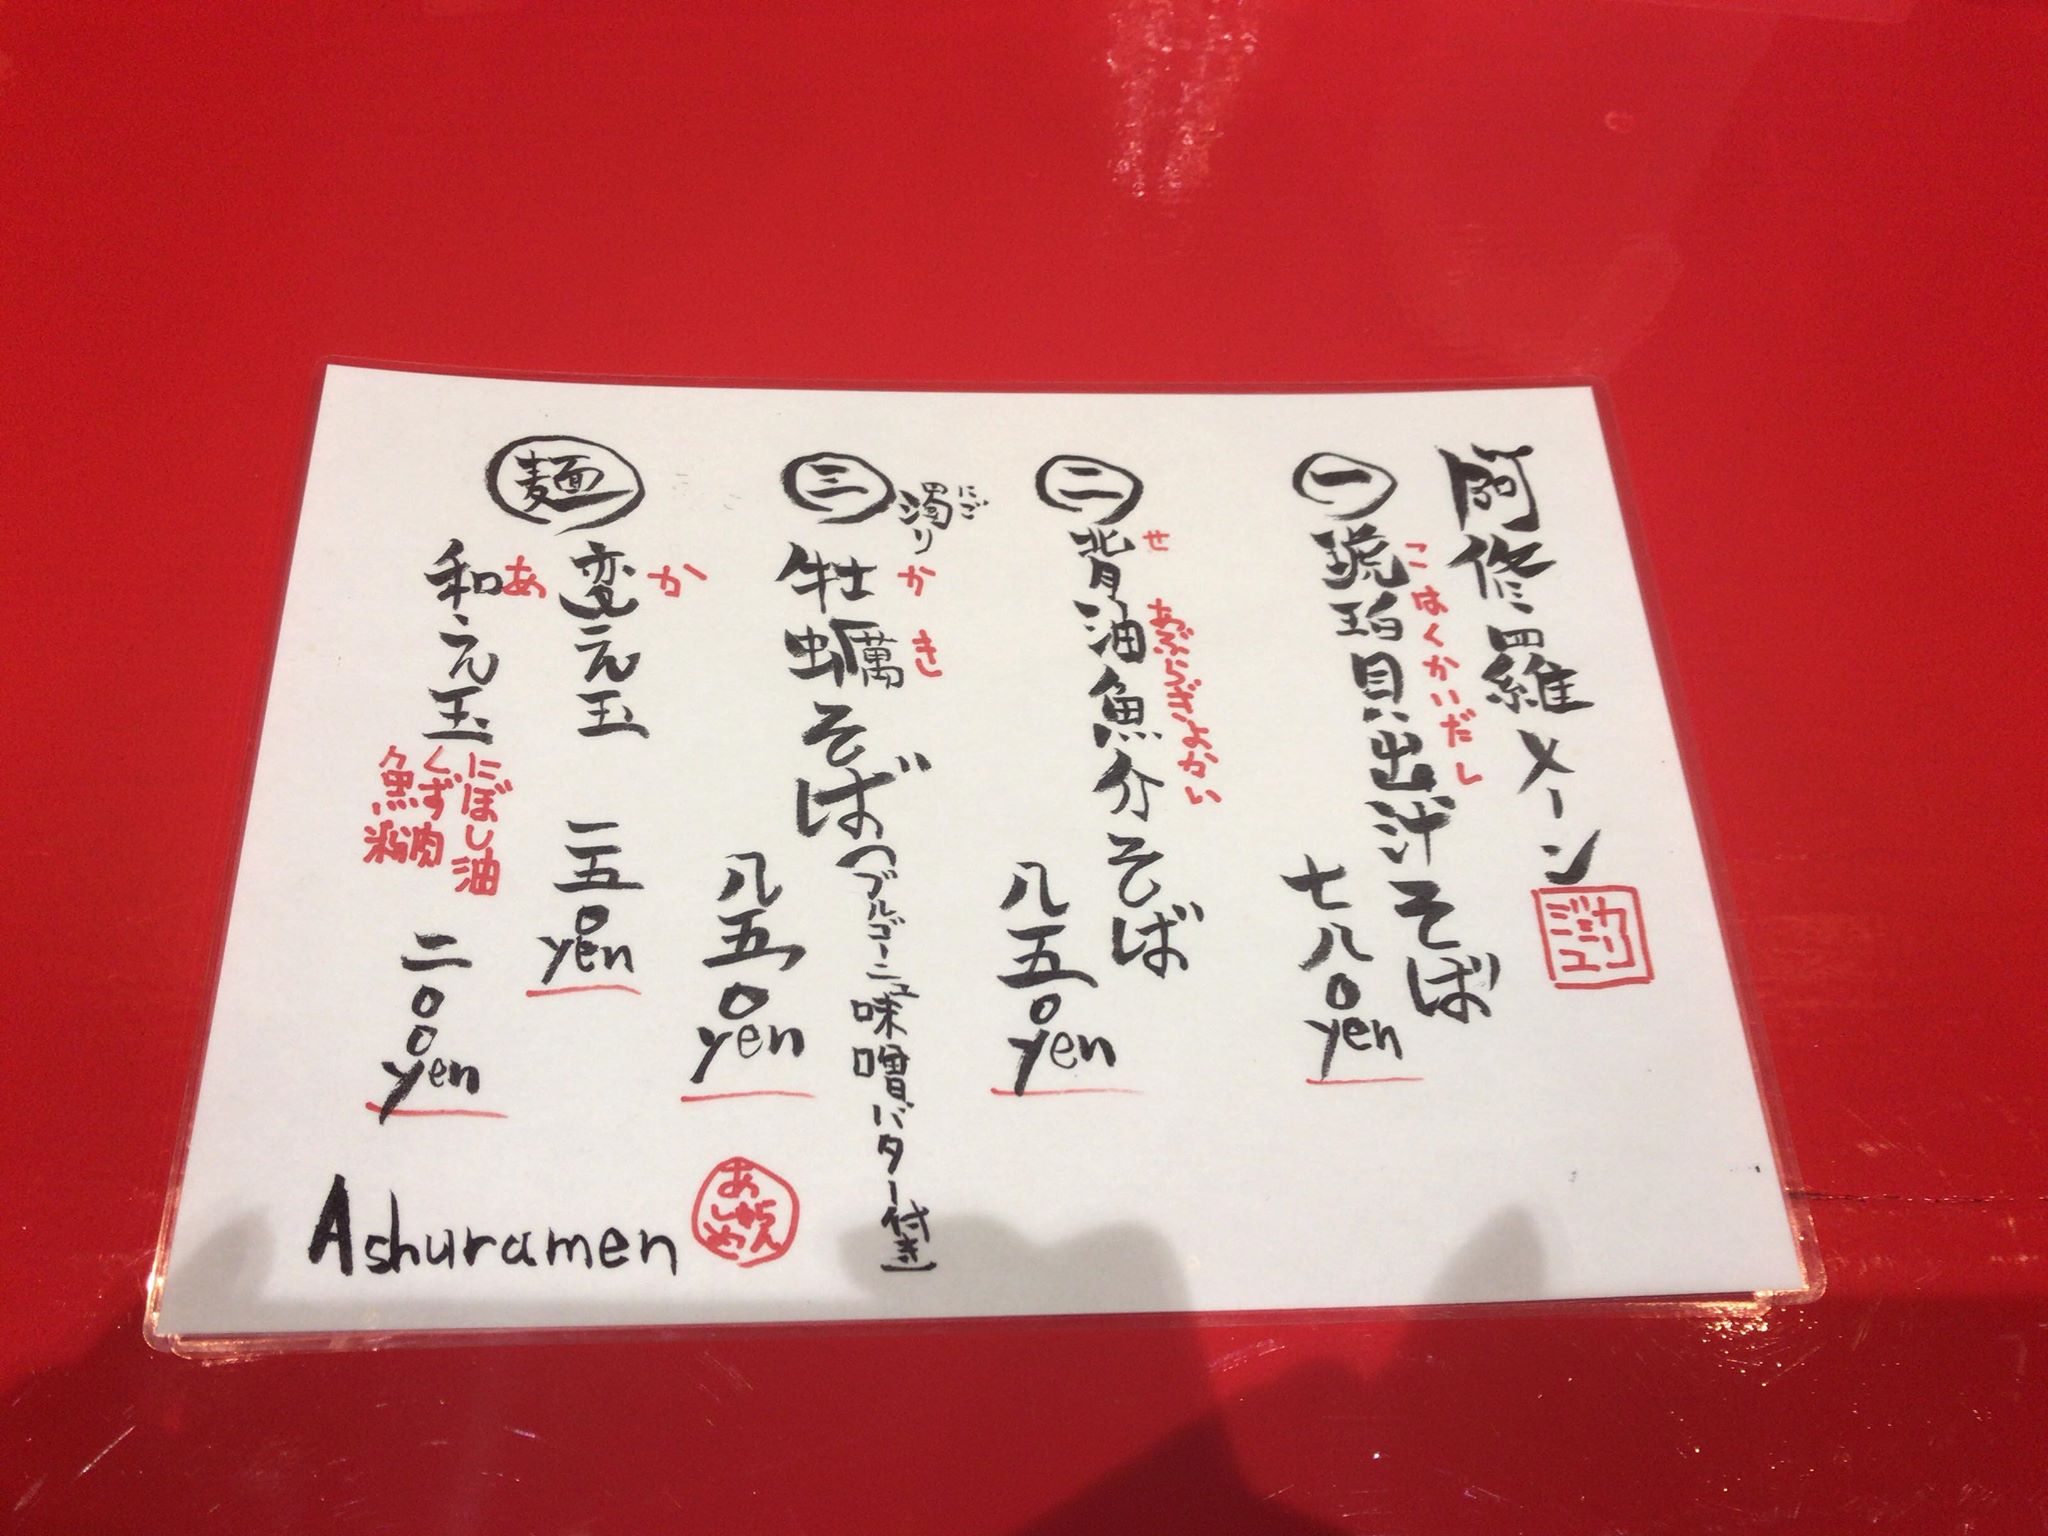 阿修羅メーン
カリ
ジミュ
㊀琥珀貝出汁そば
こはくかいだし
七八〇yen
㊁背油魚介そば
せあぶらぎょかい
八五〇yen
㊂濁り牡蠣そば(ブルゴーニュ味噌バター付き)
にご
かき
八五〇yen
麺
変え玉
か
一五〇yen
和え玉
あ
にぼし油
くず肉
魚粉
二〇〇yen
Ashuramen